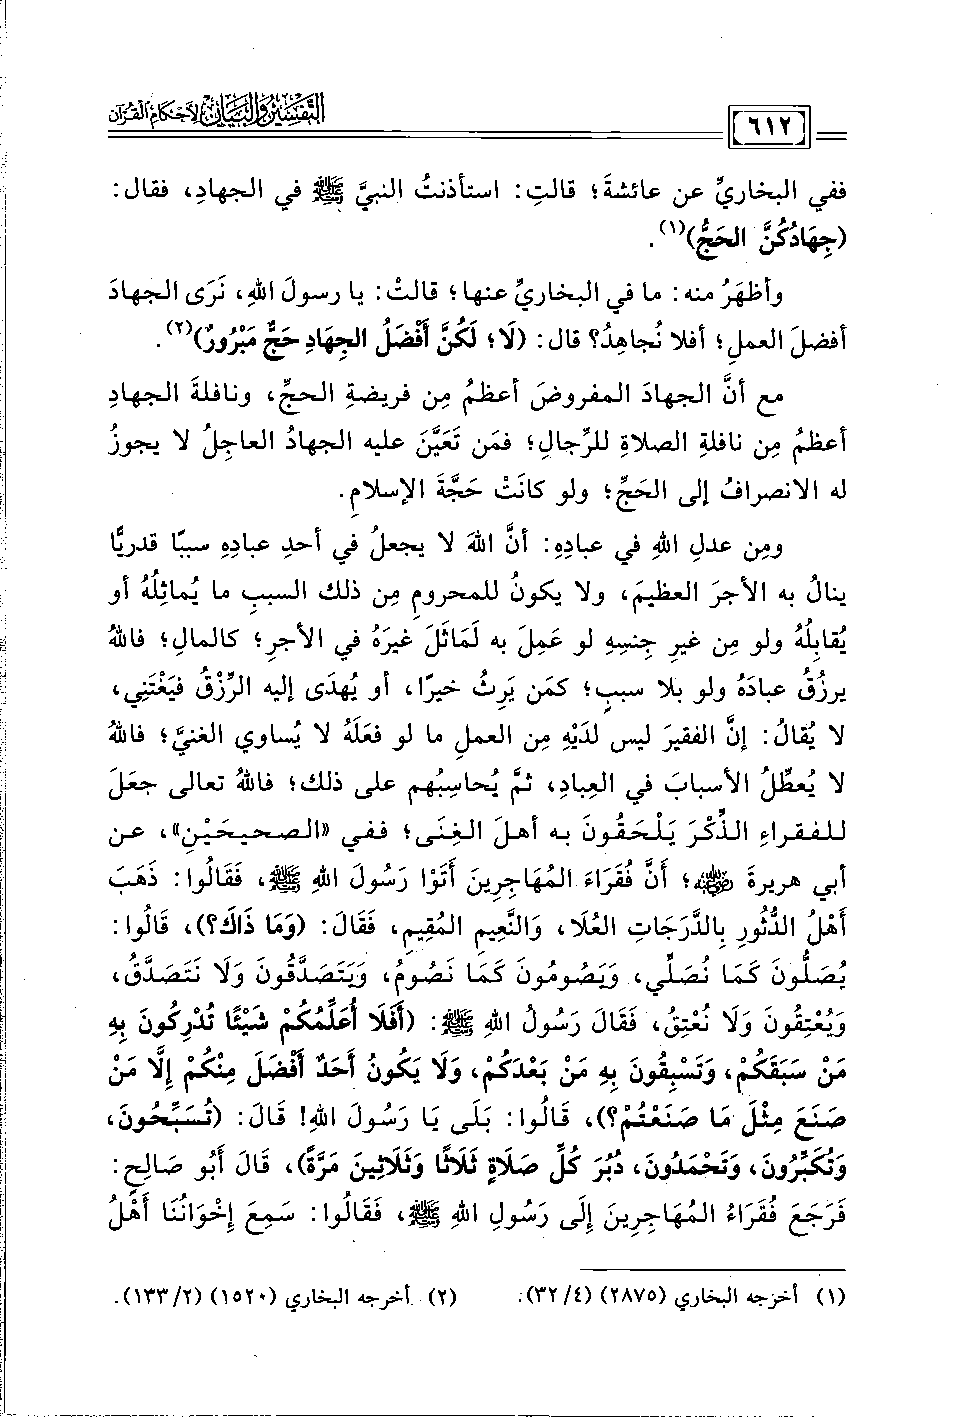 التفسير والبيان لأحكام القرآن
٦١٢
ففي البخاريِّ عن عائشةَ؛ قالتِ: استأذنتُ النبيَّ ﷺ في الجهادِ، فقال:
(جِهَادُكُنَّ الحَجُّ)(١).
وأظهَرُ منه: ما في البخاريِّ عنها؛ قالتْ: يا رسولَ اللهِ، نَرَى الجهادَ
أفضلَ العملِ؛ أفلا نُجاهِدُ؟ قال: (لَا؛ لَكُنَّ أَفْضَلُ الجِهَادِ حَجٌّ مَبْرُورٌ)(٢).
مع أنَّ الجهادَ المفروضَ أعظمُ مِن فريضةِ الحجِّ، ونافلةَ الجهادِ
أعظمُ مِن نافلةِ الصلاةِ للرِّجالِ؛ فمَن تَعَيَّنَ عليه الجهادُ العاجِلُ لا يجوزُ
له الانصرافُ إلى الحَجِّ؛ ولو كانَتْ حَجَّةَ الإسلامِ.
ومِن عدلِ اللهِ في عبادِهِ: أنَّ اللهَ لا يجعلُ في أحدِ عبادِهِ سببًا قدريًّا
ينالُ به الأجرَ العظيمَ، ولا يكونُ للمحرومِ مِن ذلك السببِ ما يُماثِلُهُ أو
يُقابِلُهُ ولو مِن غيرِ جِنسِهِ لو عَمِلَ به لَمَاثَلَ غيرَهُ في الأجرِ؛ كالمالِ؛ فاللهُ
يرزُقُ عبادَهُ ولو بلا سببٍ؛ كمَن يَرِثُ خيرًا، أو يُهدَى إليه الرِّزْقُ فيَغْتَنِي،
لا يُقالُ: إنَّ الفقيرَ ليس لدَيْهِ مِن العملِ ما لو فعَلَهُ لا يُساوي الغنيَّ؛ فاللهُ
لا يُعطِّلُ الأسبابَ في العِبادِ، ثمَّ يُحاسِبُهم على ذلك؛ فاللهُ تعالى جعَلَ
للفقراءِ الذِّكْرَ يَلْحَقُونَ به أهلَ الغِنَى؛ ففي «الصحيحَيْنِ»، عن
أبي هريرةَ رضي الله عنه؛ أَنَّ فُقَرَاءَ المُهَاجِرِينَ أَتَوْا رَسُولَ اللهِ ﷺ، فَقَالُوا: ذَهَبَ
أَهْلُ الدُّثُورِ بِالدَّرَجَاتِ العُلَا، وَالنَّعِيمِ المُقِيمِ، فَقَالَ: (وَمَا ذَاكَ؟)، قَالُوا:
يُصَلُّونَ كَمَا نُصَلِّي، وَيَصُومُونَ كَمَا نَصُومُ، وَيَتَصَدَّقُونَ وَلَا نَتَصَدَّقُ،
وَيُعْتِقُونَ وَلَا نُعْتِقُ، فَقَالَ رَسُولُ اللهِ ﷺ: (أَفَلَا أُعَلِّمُكُمْ شَيْئًا تُدْرِكُونَ بِهِ
مَنْ سَبَقَكُمْ، وَتَسْبِقُونَ بِهِ مَنْ بَعْدَكُمْ، وَلَا يَكُونُ أَحَدٌ أَفْضَلَ مِنْكُمْ إِلَّا مَنْ
صَنَعَ مِثْلَ مَا صَنَعْتُمْ؟)، قَالُوا: بَلَى يَا رَسُولَ اللهِ! قَالَ: (تُسَبِّحُونَ،
وَتُكَبِّرُونَ، وَتَحْمَدُونَ، دُبُرَ كُلِّ صَلَاةٍ ثَلَاثًا وَثَلَاثِينَ مَرَّةً)، قَالَ أَبُو صَالِحٍ:
فَرَجَعَ فُقَرَاءُ المُهَاجِرِينَ إِلَى رَسُولِ اللهِ ﷺ، فَقَالُوا: سَمِعَ إِخْوَانُنَا أَهْلُ
(١) أخرجه البخاري (٢٨٧٥) (٤/ ٣٢). (٢) أخرجه البخاري (١٥٢٠) (٢/ ١٣٣).